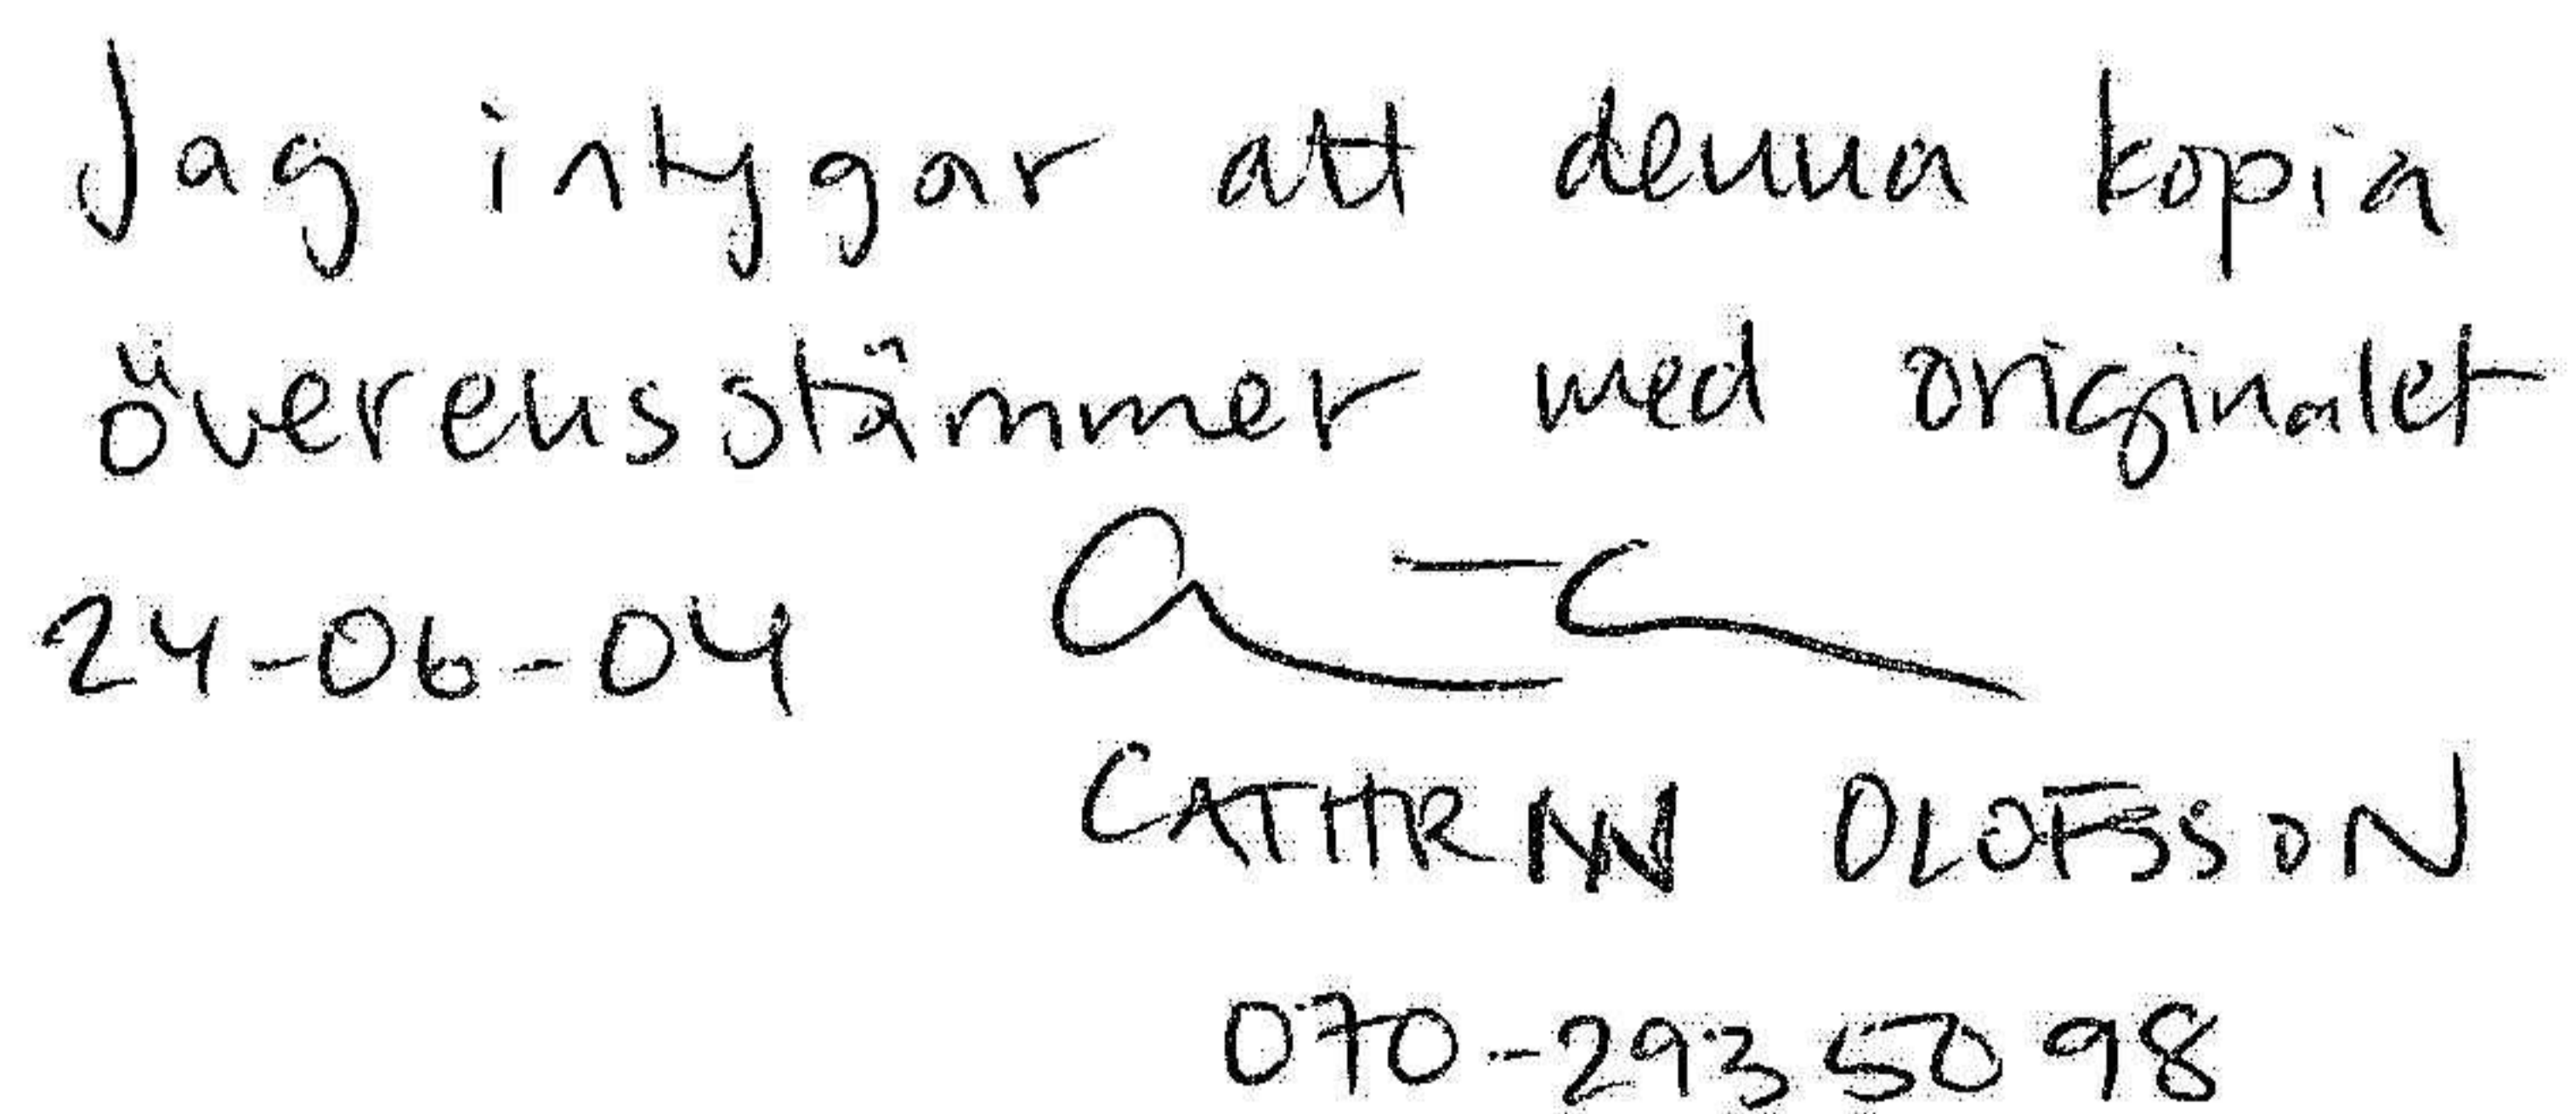 Jag intygar att denna kopia
överensstämmer med originalet
24-06-04
CATHRINN OLOFSSON
070-293 50 98